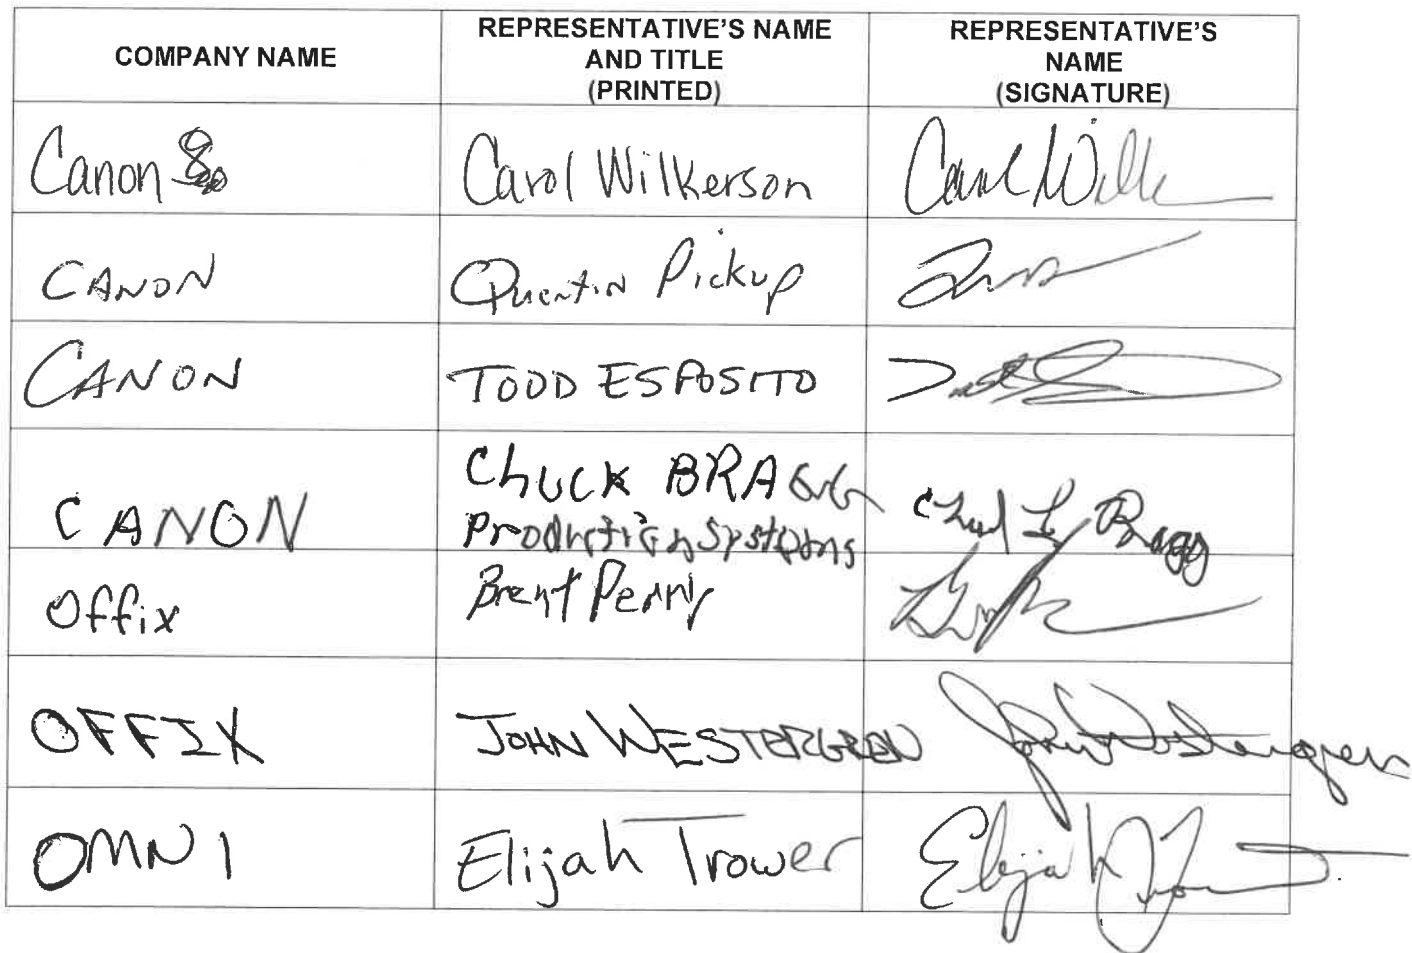 COMPANY NAME
REPRESENTATIVE'S NAME
AND TITLE
(PRINTED)
REPRESENTATIVE'S
NAME
(SIGNATURE)
Canon Carol Wilkerson
CANON Quentin Pickup
CANON TODD ESPOSITO
CANON Chuck BRAGG Chuck L Bragg
Production Systems
Offix Brent Penny
OFFIX JOHN WESTERGREN John Westergren
OMNI Elijah Trower Elijah Trower